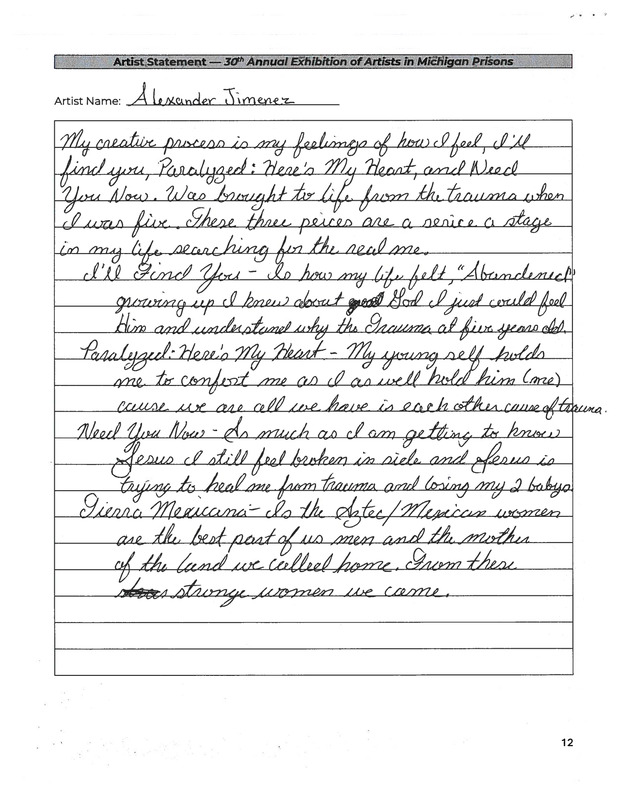 Artist Statement — 30th Annual Exhibition of Artists in Michigan Prisons
Artist Name: Alexander Jimenez
My creative process is my feelings of how I feel, I'll
find you, Paralyzed: Here's My Heart, and Need
You Now. Was brought to life from the trauma when
I was five. These three peices are a serice a stage
in my life searching for the real me.
I'll Find You - Is how my life felt, "Abandened"
growing up I knew about God I just could feel
Him and understand why the Trauma at five years old.
Paralyzed: Here's My Heart - My young self holds
me to confort me as I as well hold him (me)
cause we are all we have is each other cause of trauma.
Need You Now - As much as I am getting to know
Jesus I still feel broken in side and Jesus is
trying to heal me from trauma and losing my 2 babys.
Tierra Mexicana - Is the Aztec/Mexican women
are the best part of us men and the mother
of the land we called home. From these
stronge women we came.
12